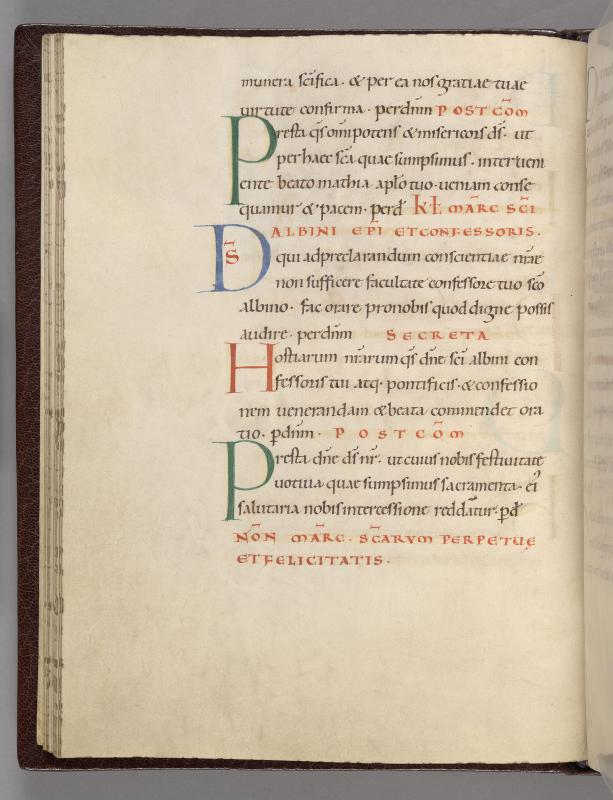 munera sc̄ifica. & per ea nos gratiae tuae
uirtute confirma. per dn̄m POST COM̄
Presta qs̄ om̄ipotens & misericors ds̄. ut
per haec sc̄a quae sumpsimus. interueni
ente beato mathia aplo̅ tuo. ueniam conse
quamur & pacem. perd̄ KL̄ MAR̄C SC̄I
ALBINI EPĪ ET CONFESSORIS.
DS̄ qui ad preclarandum conscientiae nr̄ae
non sufficere facultate confessore tuo sc̄o
albino. fac orare pro nobis quod digne possis
audire. per dn̄m SECRETA
Hostiarum nr̄arum qs̄ dn̄e sc̄i albini con
fessoris tui atq. pontificis. & confessio
nem uenerandam & beata commendet ora
tio. p̄ dn̄m. POST COM̄
Presta dn̄e ds̄ nr̄. ut cuius nobis festiuitate
uotiua quae sumpsimus sacramenta. ei᾿
salutaria nobis intercessione reddat̄ur. p̄d̄
NŌN MAR̄C. SC̄ARVM PERPETUĘ
ET FELICITATIS.